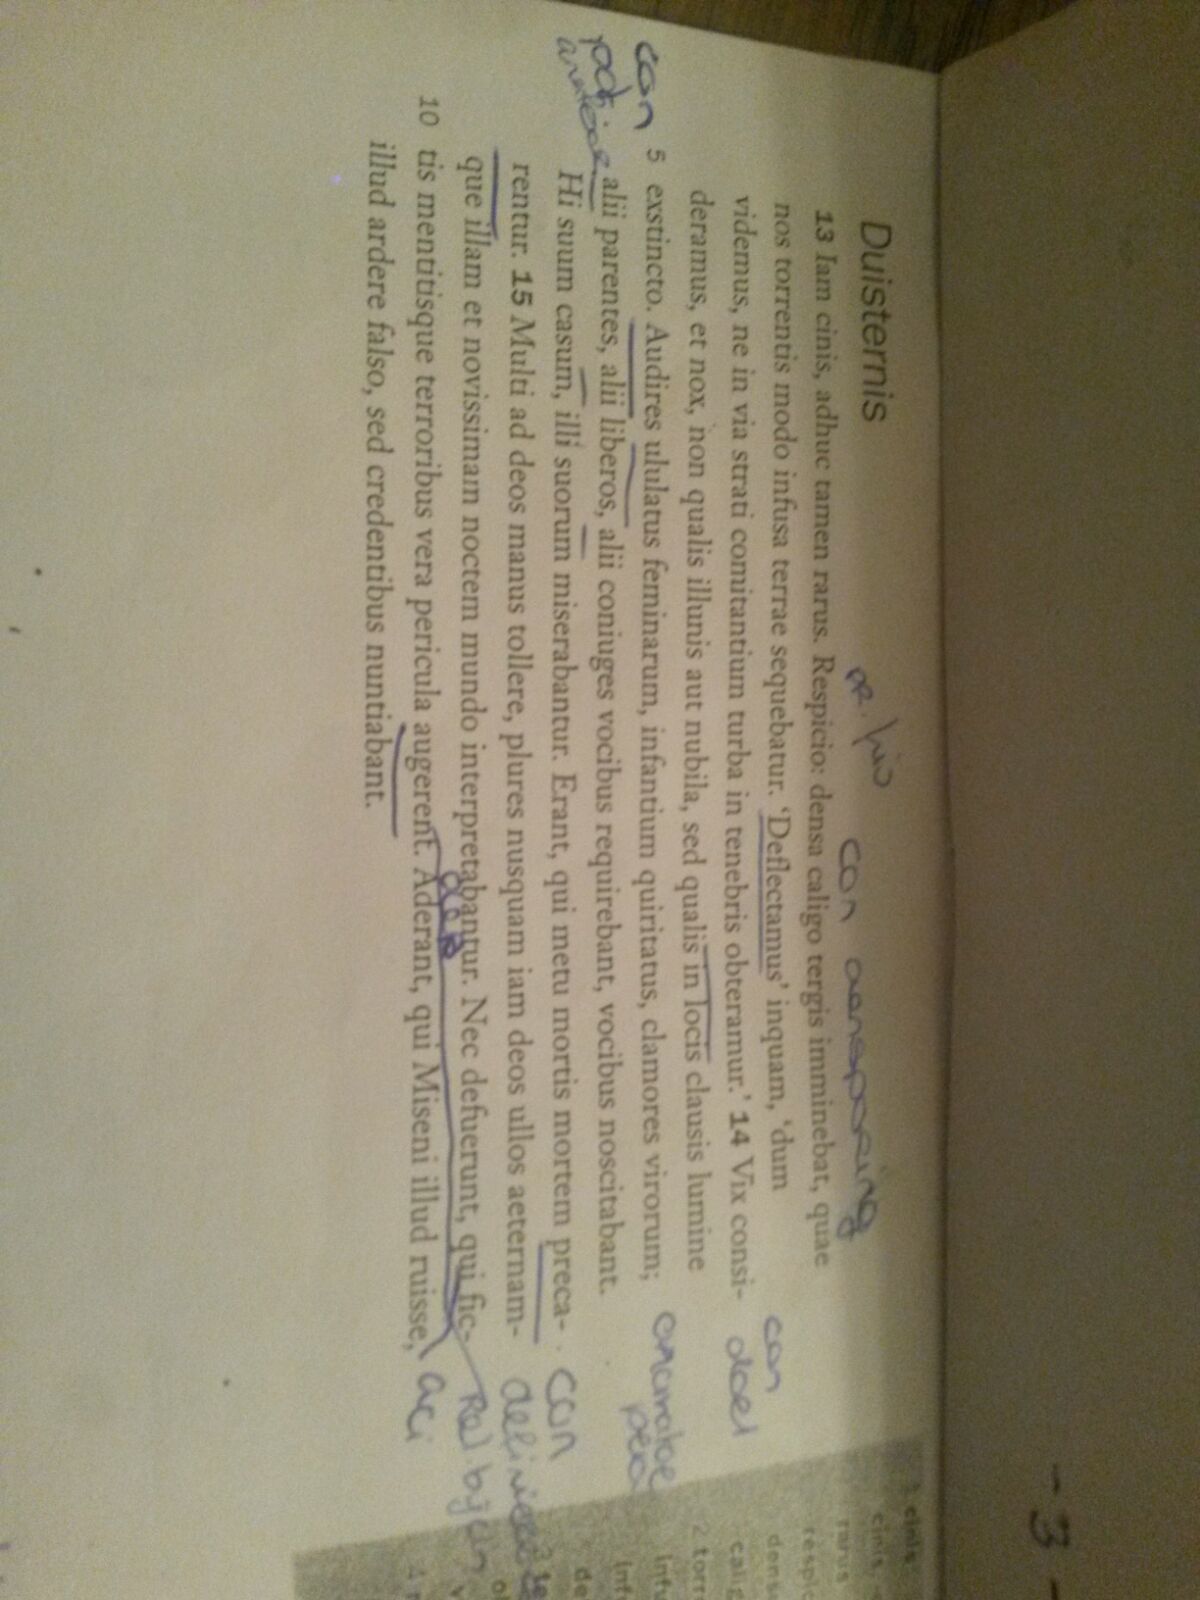 - 3 -
Duisternis
pr. his
con aansporing
13 Iam cinis, adhuc tamen rarus. Respicio: densa caligo tergis imminebat, quae
nos torrentis modo infusa terrae sequebatur. ‘Deflectamus’ inquam, ‘dum
videmus, ne in via strati comitantium turba in tenebris obteramur.’ 14 Vix consi-
con
doel
deramus, et nox, non qualis illunis aut nubila, sed qualis in locis clausis lumine
con 5 exstincto. Audires ululatus feminarum, infantium quiritatus, clamores virorum;
alii parentes, alii liberos, alii coniuges vocibus requirebant, vocibus noscitabant.
Hi suum casum, illi suorum miserabantur. Erant, qui metu mortis mortem preca- con
rentur. 15 Multi ad deos manus tollere, plures nusquam iam deos ullos aeternam-
que illam et novissimam noctem mundo interpretabantur. Nec defuerunt, qui fic- Rel bijzin
10 tis mentitisque terroribus vera pericula augerent. Aderant, qui Miseni illud ruisse, aci
illud ardere falso, sed credentibus nuntiabant.
1 cinis
cinis,
rarus
respic
dens
calig
2 torr
infu